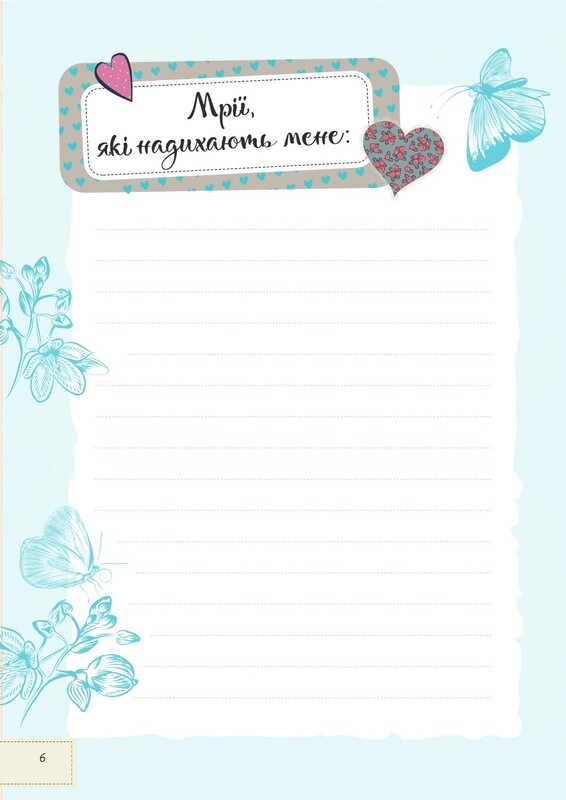 Мрії,
які надихають мене:
6